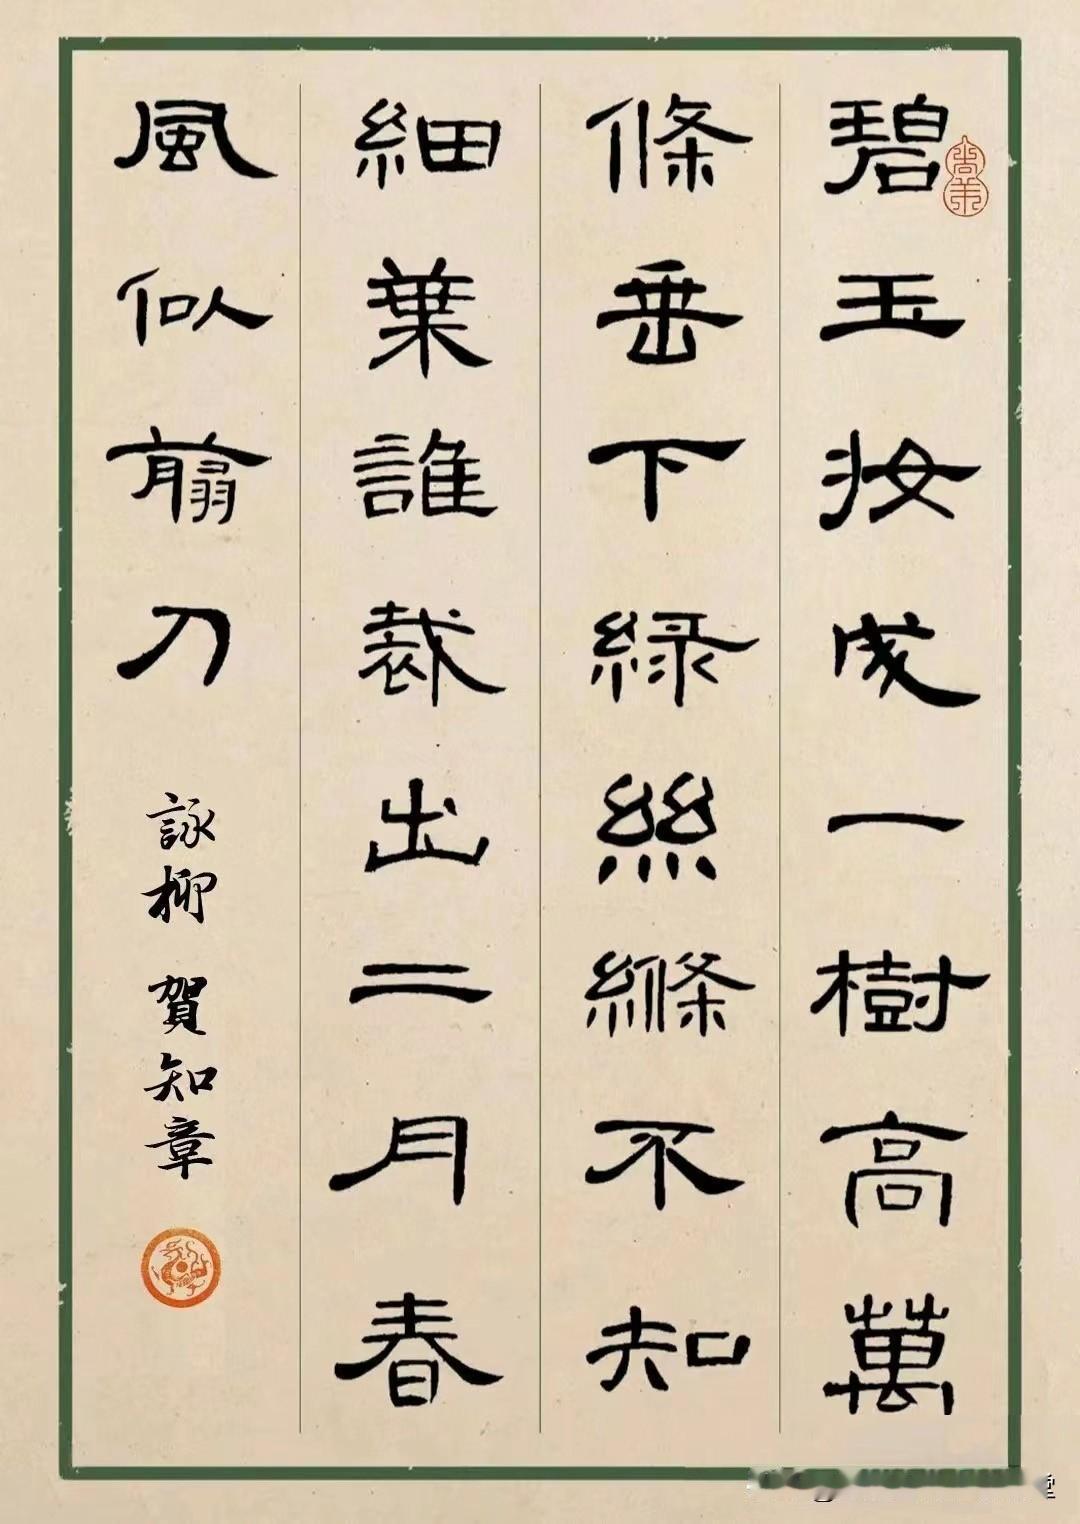 碧玉妝成一樹高萬
條垂下綠絲縧不知
細葉誰裁出二月春
風似翦刀
詠柳 賀知章